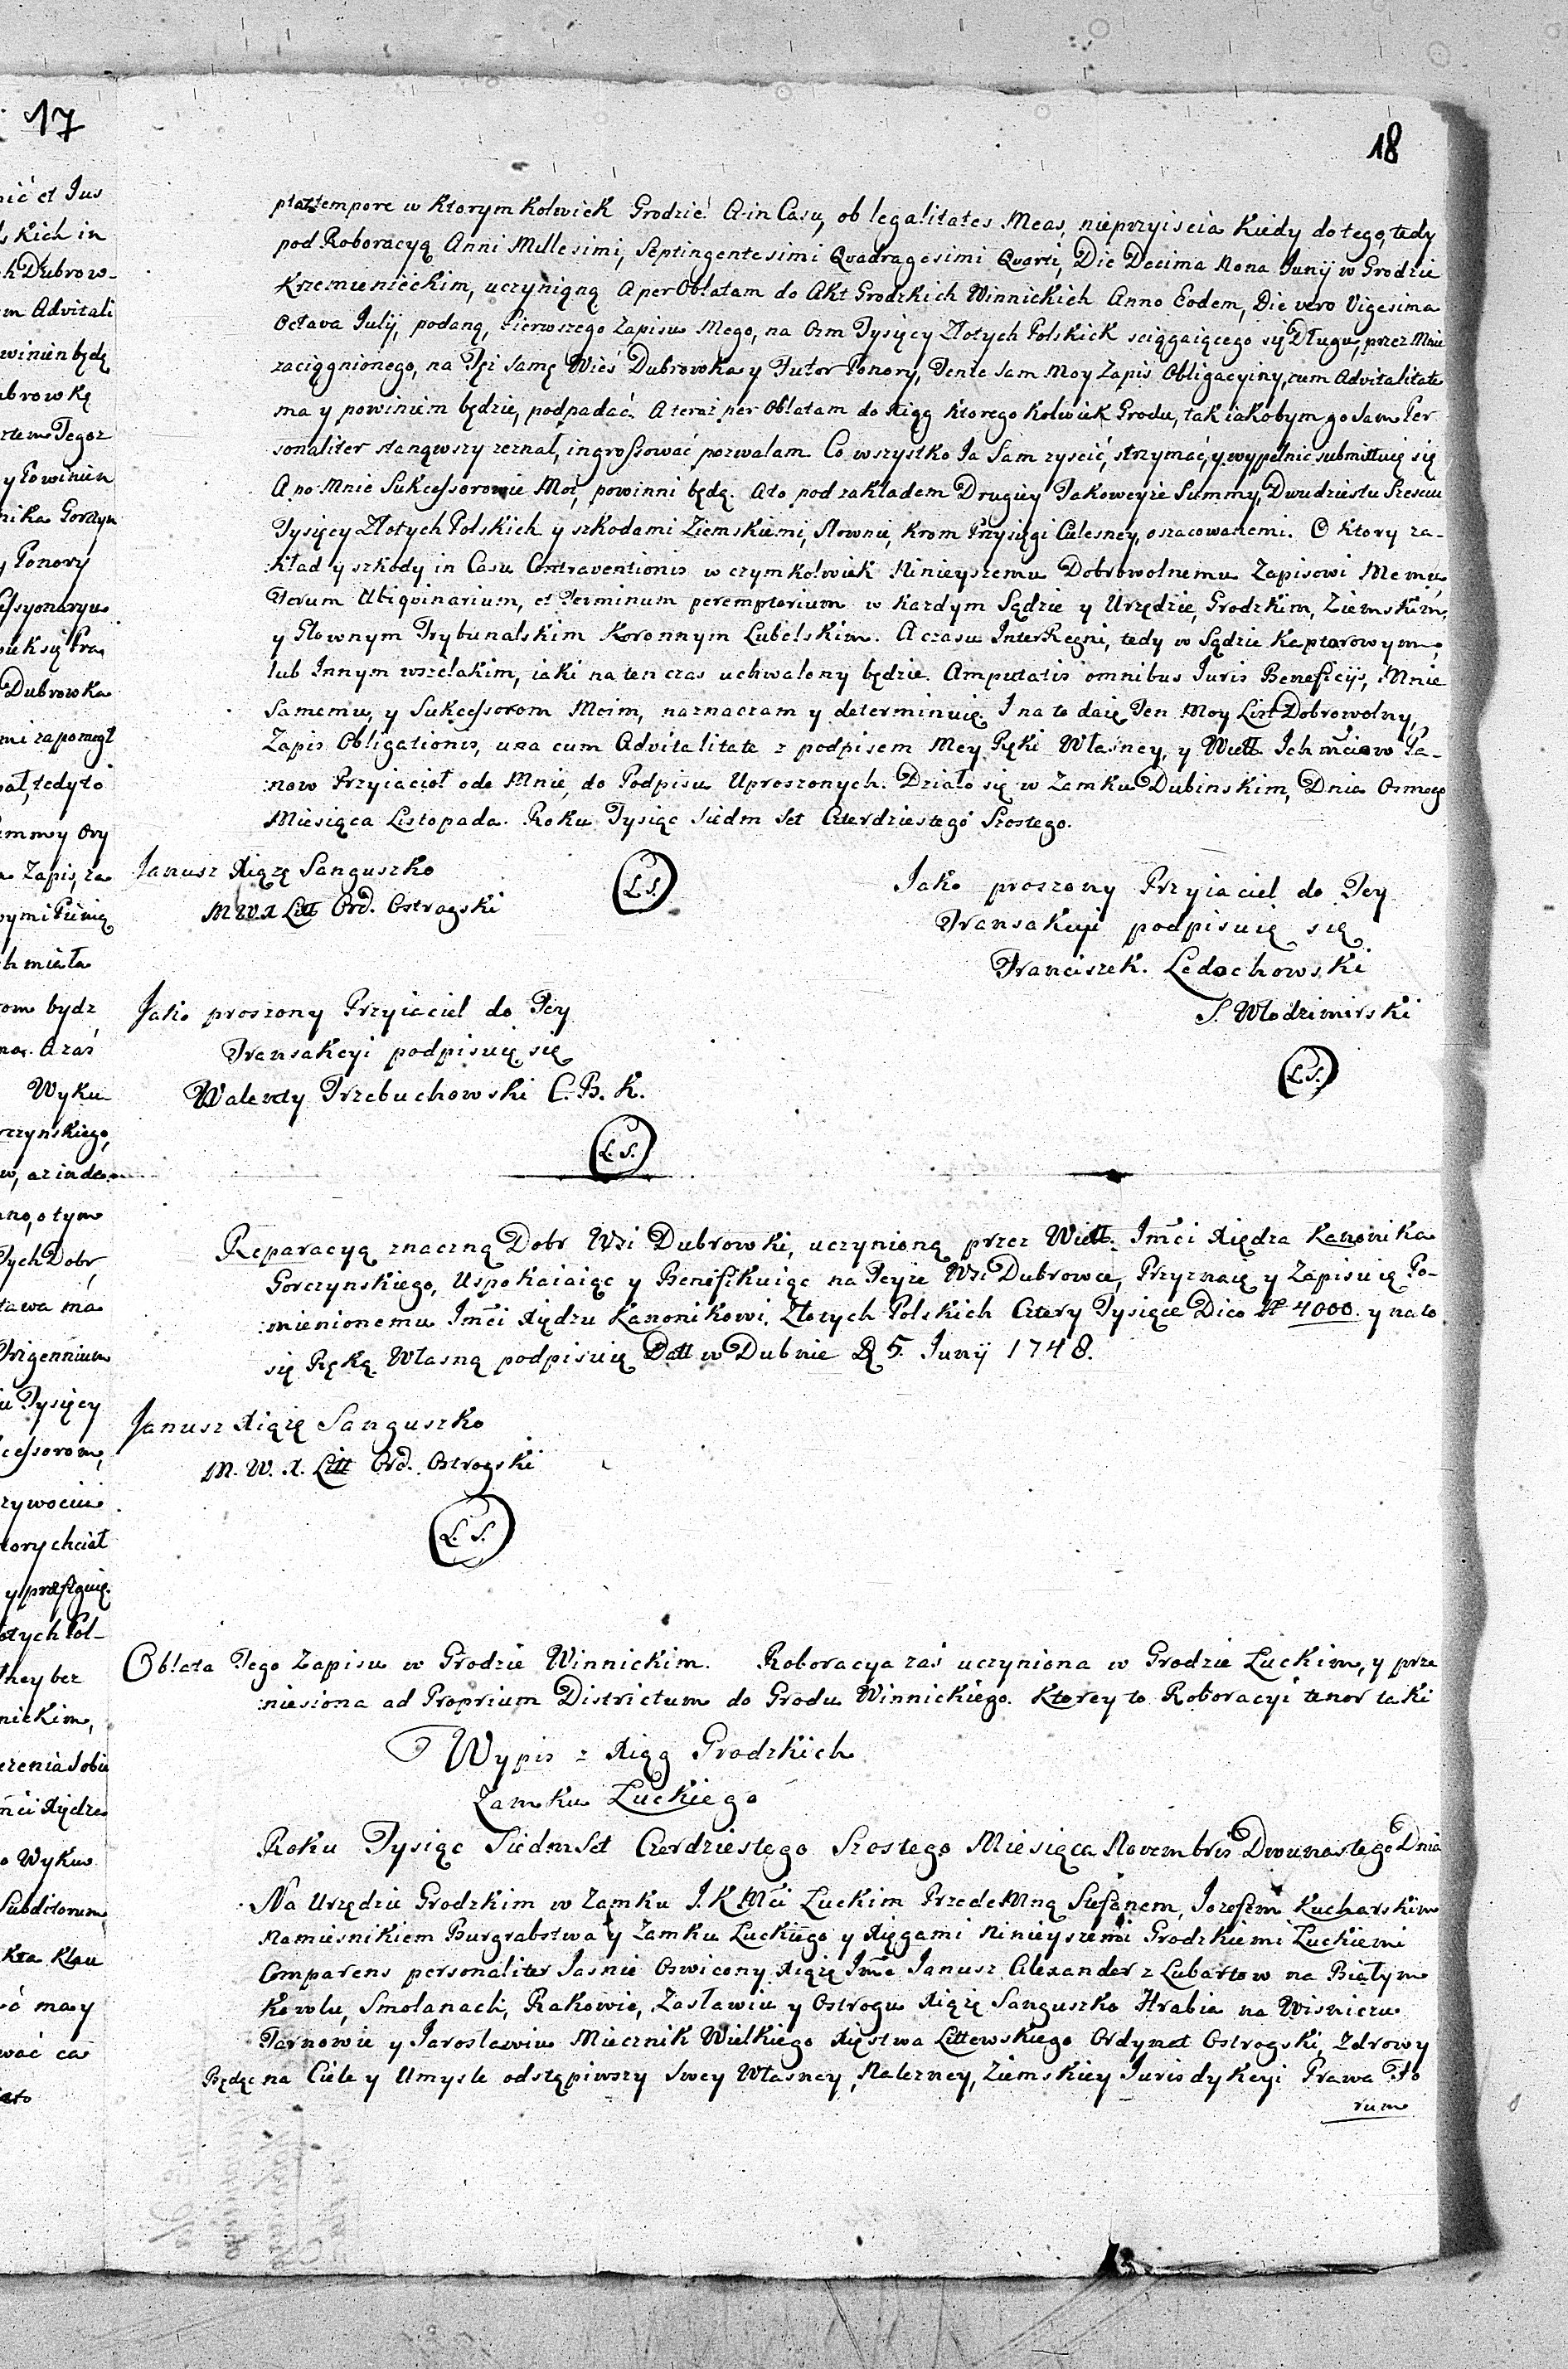 17
18
pta tempore w Ktorym Kolwiek Grodzie. A in Casu, ob legalitates Meas, nieprzyiscia Kiedy do tego, tedy
pod Roboracyą Anni Millesimi, Septingentesimi Quadragesimi Quarti, Die Decima Nona Junij w Grodzie
Krzemienieckim, uczynioną A per Oblatam do Akt Grodzkich Winnickich Anno Eodem, Die vero Vigesima
Octava Julij, podaną, Pierwszego Zapisu Mego, na Osm Tysięcy Złotych Polskich sciągaiącego się Długu, przez Mnie
zaciągnionego, na Tęż samę Wieś Dubrowka y Futor Ponory, Tenże Sam Moy Zapis Obligacyiny, cum Advitalitate
ma y powinien będzie, podpadać. A teraz per Oblatam do Xiąg Ktorego Kolwiek Grodu, tak iakobym go Sam Per
sonaliter stanąwszy zeznał, ingrossować pozwalam. Co wszystko Ja Sam zyscić, strzymać, y wypełnić submittuię się
A po Mnie Sukcessorowie Moi, powinni będą. A to pod zakładem Drugiey Takoweyże Summy, Dwudziestu Szesciu
Tysięcy Złotych Polskich y szkodami Ziemskiemi, Słownie, Krom Przysięgi Cielesney, oszacowanemi. O Ktory za-
kład y szkody in Casu Contraventionis w czymkolwiek Ninieyszemu Dobrowolnemu Zapisowi Memu,
Forum Ubiquinarium, et Terminum peremptorium w Kazdym Sądzie y Urzędzie, Grodzkim, Ziemskim,
y Głownym Trybunalskim Koronnym Lubelskim. A czasu InterRegni, tedy w Sądzie Kapturowym,
lub Innym wszelakim, iaki na ten czas uchwalony będzie. Amputatis omnibus Juris Beneficijs, Mnie
Samemu, y Sukcessorom Moim, naznaczam y determinuię. I na to daię Ten Moy List Dobrowolny,
Zapis Obligationis, una cum Advitalitate z podpisem Mey Ręki Własney, y Wiell. Ich mściow Pa-
now Przyiacioł ode Mnie, do Podpisu Uproszonych. Działo się w Zamku Dubinskim, Dnia Osmego
Miesiąca Listopada. Roku Tysiąc Siedm Set Czterdziestego Szostego.
Janusz Xiąże Sanguszko
M W. X Litt Ord. Ostrogski
L. S.
Jako proszony Przyiaciel do Tey
Transakcyi podpisuię się
Franciszek. Ledochowski
S. Włodzimirski
L. S.
Jako proszony Przyiaciel do Tey
Transakcyi podpisuię się
Walenty Trzebuchowski C. B. K.
L. S.
Reparacyą znaczną Dobr Wsi Dubrowki, uczynioną przez Wiell. Jmści Xiędza Kanonika
Gorczynskiego, Uspokaiaiąc y Benifikuiąc na Teyże Wsi Dubrowce, Przyznaię y Zapisuię Po-
mienionemu Jmści Xiędzu Kanonikowi, Złotych Polskich Cztery Tysiące Dico 4000. y na to
się Ręką Własną podpisuię Datt w Dubnie D 5. Junij 1748.
Janusz Xiąże Sanguszko
M. W. X. Litt Ord. Ostrogski
L. S.
Oblata Tego Zapisu w Grodzie Winnickim. Roboracya zaś uczyniona w Grodzie Łuckim, y prze
niesiona ad Proprium Districtum do Grodu Winnickiego. Ktorey to Roboracyi tenor taki
Wypis z Xiąg Grodzkich
Zamku Łuckiego
Roku Tysiąc SiedmSet Czerdziestego Szostego Miesiąca Novembris Dwunastego Dnia
Na Urzędzie Grodzkim w Zamku J. K Mści Łuckim Przede Mną Stefanem, Jozefem Kucharskim
Namiesnikiem Burgrabstwa y Zamku Łuckiego y Xięgami Ninieyszemi Grodzkiemi Łuckiemi
Comparens personaliter Jasnie Oswiecony Xiąże Jmść Janusz Alexander z Lubartow na Białym
Kowlu, Smolanach, Rakowie, Zasławiu y Ostrogu Xiąże Sanguszko Hrabia na Wisniczu
Tarnowie y Jarosławiu Miecznik Wielkiego Xięstwa Littewskiego Ordynat Ostrogski, Zdrowy
Będąc na Ciele y Umysle odstąpiwszy Swey Własney, Należney, Ziemskiey Jurisdykcyi Prawa Fo
rum